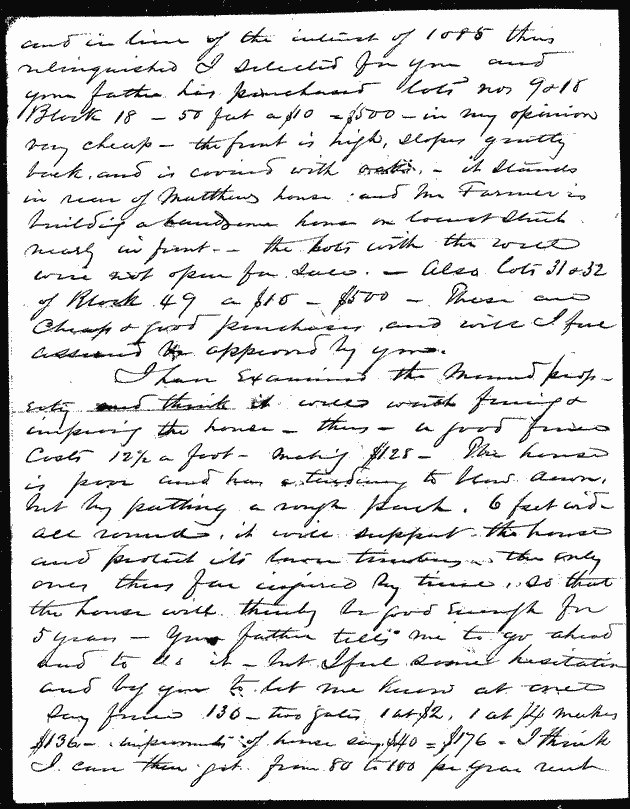 and in lieu of the interest of 1085 thus
relinquished I selected for you and
your father has purchased lots nos 9 & 18
Block 18 - 50 feet a $10 = $500 - in my opinion
very cheap - the front is high, slopes gently
back, and is covered with oaks, - it stands
in rear of Matthews house and Mr Farmer is
building a handsome house on locust Street
nearly in front. - the lots with the well
were not open for sale. - Also lots 31 & 32
of Block 49 a $10 - $500 - These are
cheap & good purchases and will I feel
assured be approved by you.
I have examined the Mound prop-
erty and think it well worth fencing &
improving the house - thus - a good fence
costs 12½ a foot - making $128 - The house
is poor and has a tendency to blow down,
but by putting a rough porch, 6 feet wide
all round, it will support the house
and protect its lower timbers - the only
ones thus far injured by time, so that
the house will thereby be good enough for
5 years - Your father tells me to go ahead
and to do it - but I feel some hesitation
and beg you to let me know at once
say fence 130 - two gates, 1 at $2, 1 at $4 makes
$136 - improvements of house say $40 = $176 - I think
I can then get from 80 to 100 per year rent